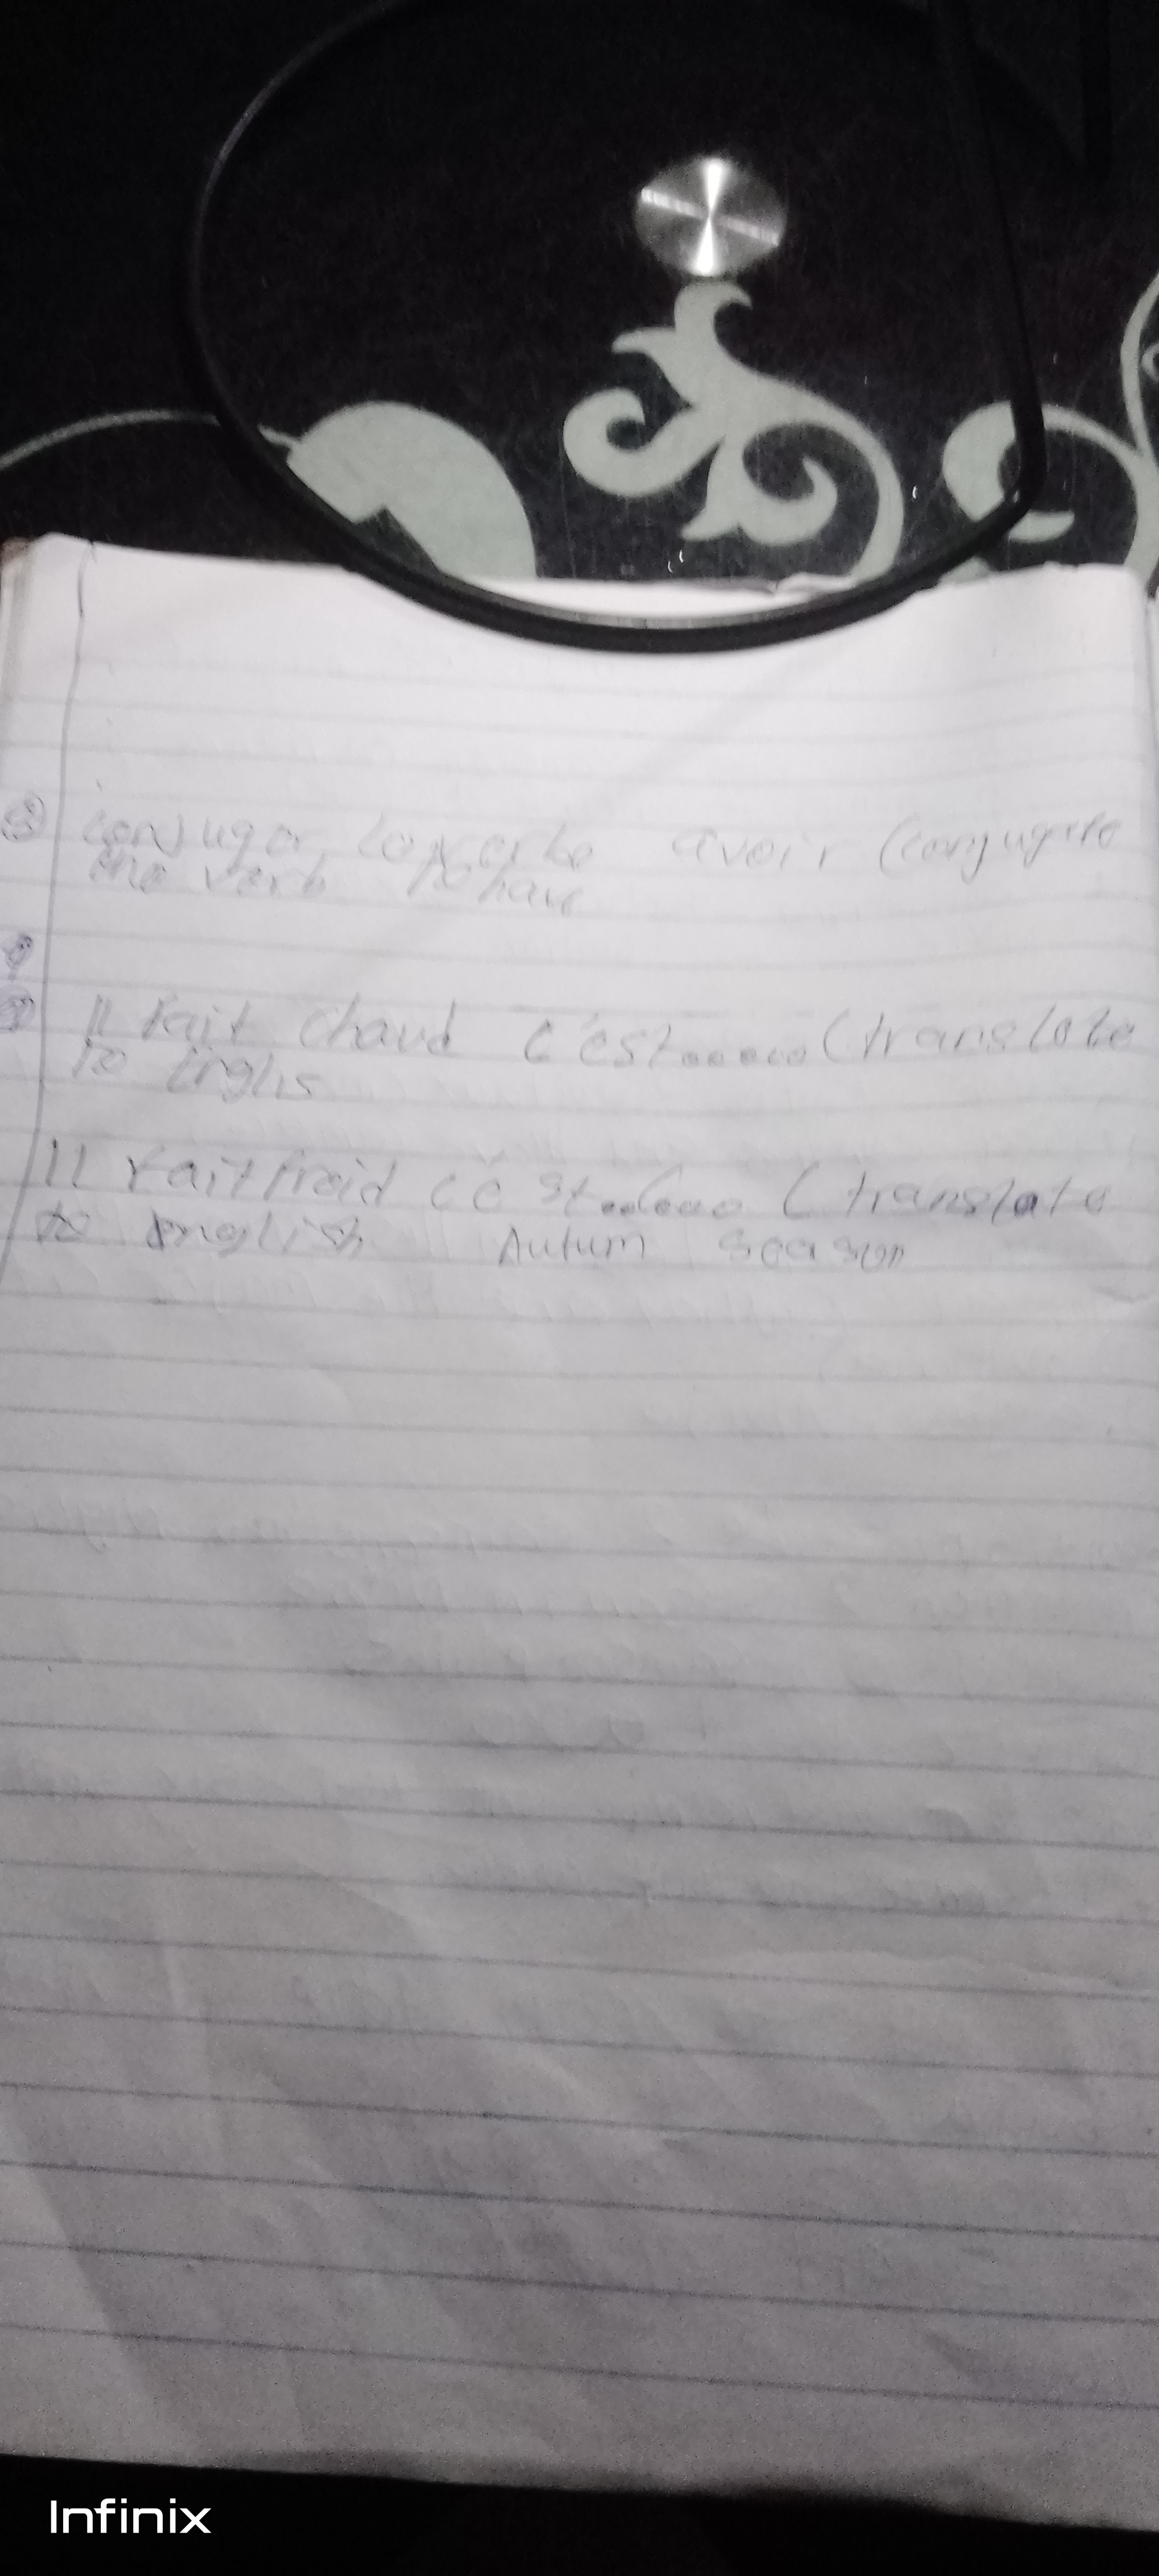 ③ conjuger le verbe avoir (conjugate
the verb to have
Il Fait chaud c'est...... (translate
to Englis
Il Fait froid c'est...... (translate
to english Autum season
Infinix